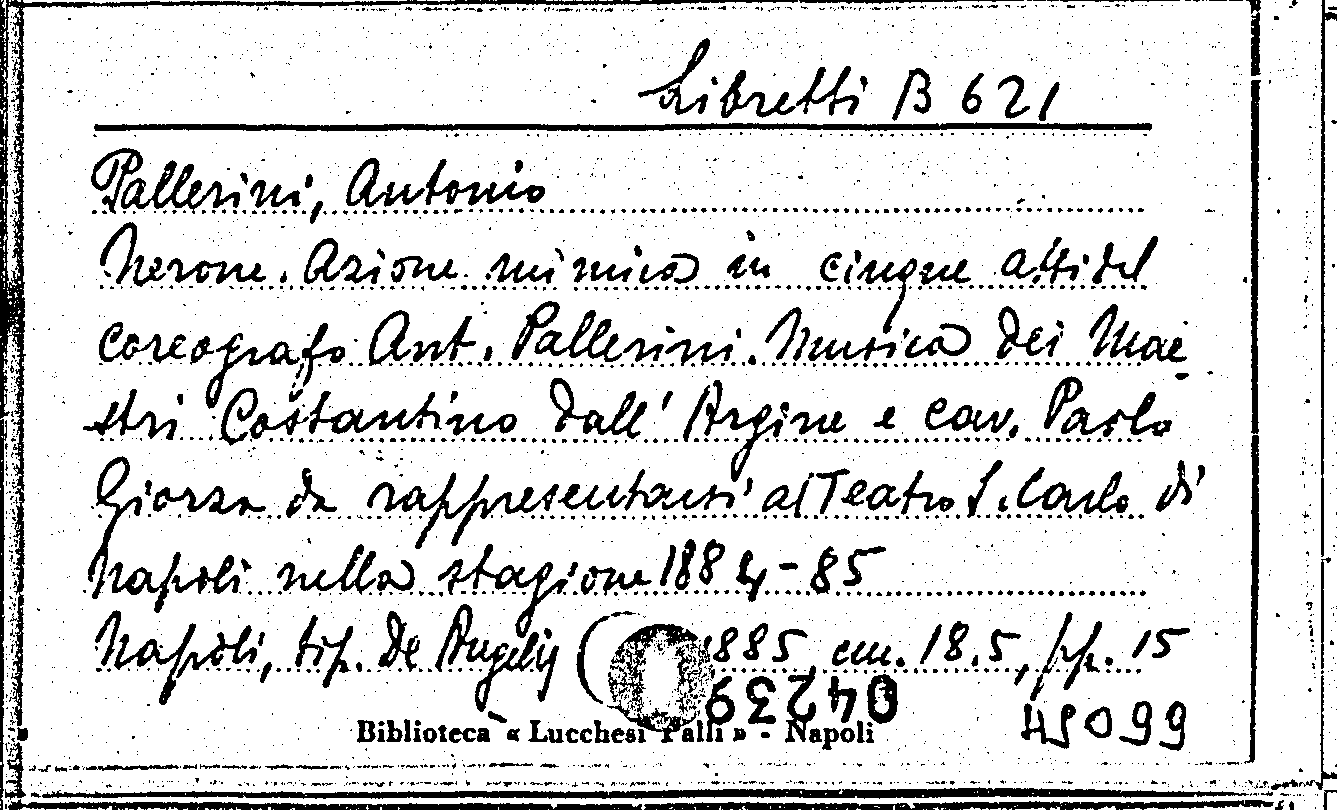 Libretti B 621
Pallerini, Antonio
Nerone. Azione mimica in cinque atti del
coreografo Ant. Pallerini. Musica dei Mae-
stri Costantino Dall'Argine e cav. Paolo
Giorza da rappresentarsi al Teatro S. Carlo di
Napoli nella stagione 1884-85
Napoli, tip. De Angelis 1885, cm. 18.5, pp. 15
04239
45099
Biblioteca « Lucchesi Palli » - Napoli